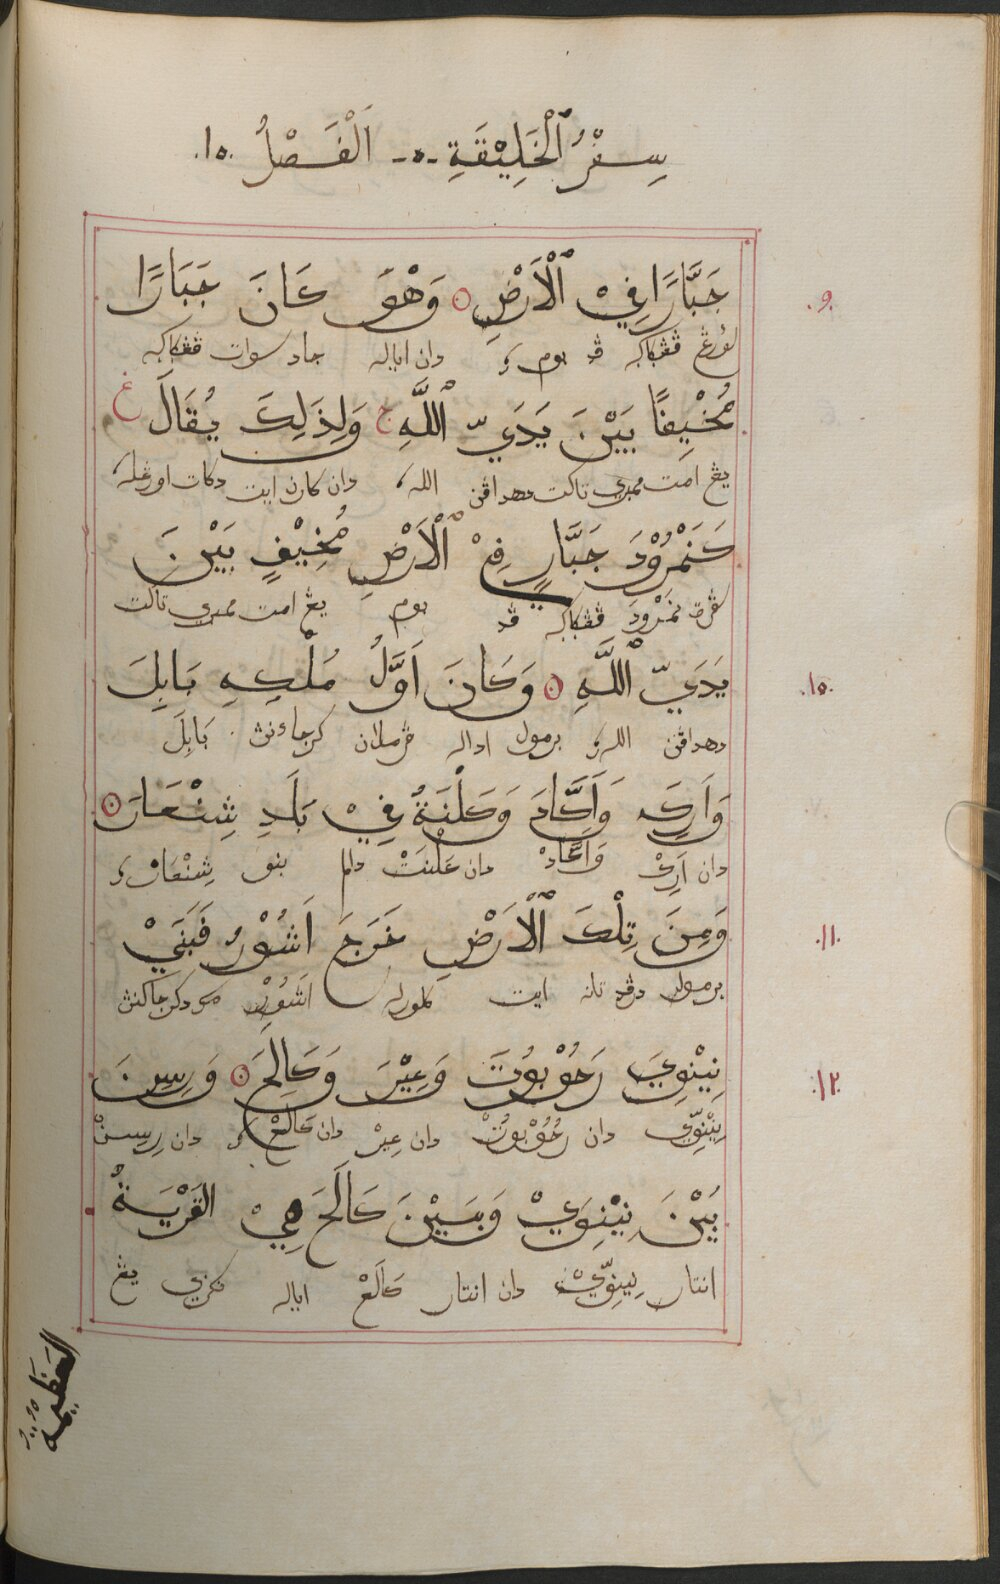 سِفْرُ ٱلْخَلِيْقَةِ -٥- اَلْفَصْلُ .١٠.
جَبَّارًا فِيْ ٱلْاَرْضِ ۞ وَهْوَ كَانَ جَبَارًا .٩.
ڤڠݢاكه ڤد بوم دان اياله جاد سوات ڤڠݢاكه
مُخْيِفًا بَيْنَ يَدَيِّ ٱللَّهِ ج وَلِذَلِكَ يُقَالَ غ
يڠ امت ممبري تاكت دهداڤن الله دان كارن ايت دكات اورڠله
كَنَمْرُوْدَ جَبَّارٍ فِيْ ٱلْاَرْضِ مُخِيْفٍ بَيْنَ
سڤرت نَمْرُوْدَ ڤڠݢاكه ڤد بوم يڠ امت ممبري تاكت
يَدَيِّ ٱللَّهِ ۞ وَكَانَ اَوَّلُ مُلْكِهِ بَابِلَ .١٠.
دهداڤن الله برمول اداله ڤرملان كرجاءنڽ بَابِلَ
وَاَرَكِ وَاَكَّادَ وَكَلْنَةُ فِيْ بَلَدِ شِنْعَارَ ۞
دان اَرِكْ وَاَكَّادْ دان كَلْنَتْ دالم بنو شِنْعَارْ
وَمِنَ تِلْكَ ٱلْاَرْضِ خَرَجَ اَشُوْرُ فَبَنَيْ .١١.
برمول درڤد تانه ايت كلورله اَشُوْرْ
نِيْنِوِيَ رَحُوْبُوْتَ وَعِيْرَ وَكَالِحَ ۞ وَرِسِنَ .١٢.
نِيْنِوِّيْ دان رَحُوْبُوْتْ دان عِيْرْ دان كَالَحْ دان رِسِنْ
بَيْنَ نِيْنِوَيْ وَبَيْنَ كَالَحَ هِيَ القَرْيَةُ
انتار نِيْنِوِّيْ دان انتار كَالَحْ اياله نڬري يڠ
العَظِيْمَةُ